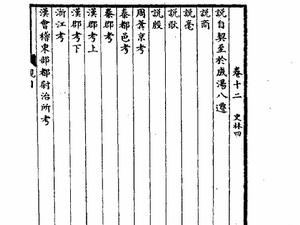 卷十二 史林四
說自契至於成湯八遷
說商
說亳
說耿
說殷
周葊京考
秦都邑考
秦郡考
漢郡考上
漢郡考下
浙江考
漢會稽東部都尉治所考